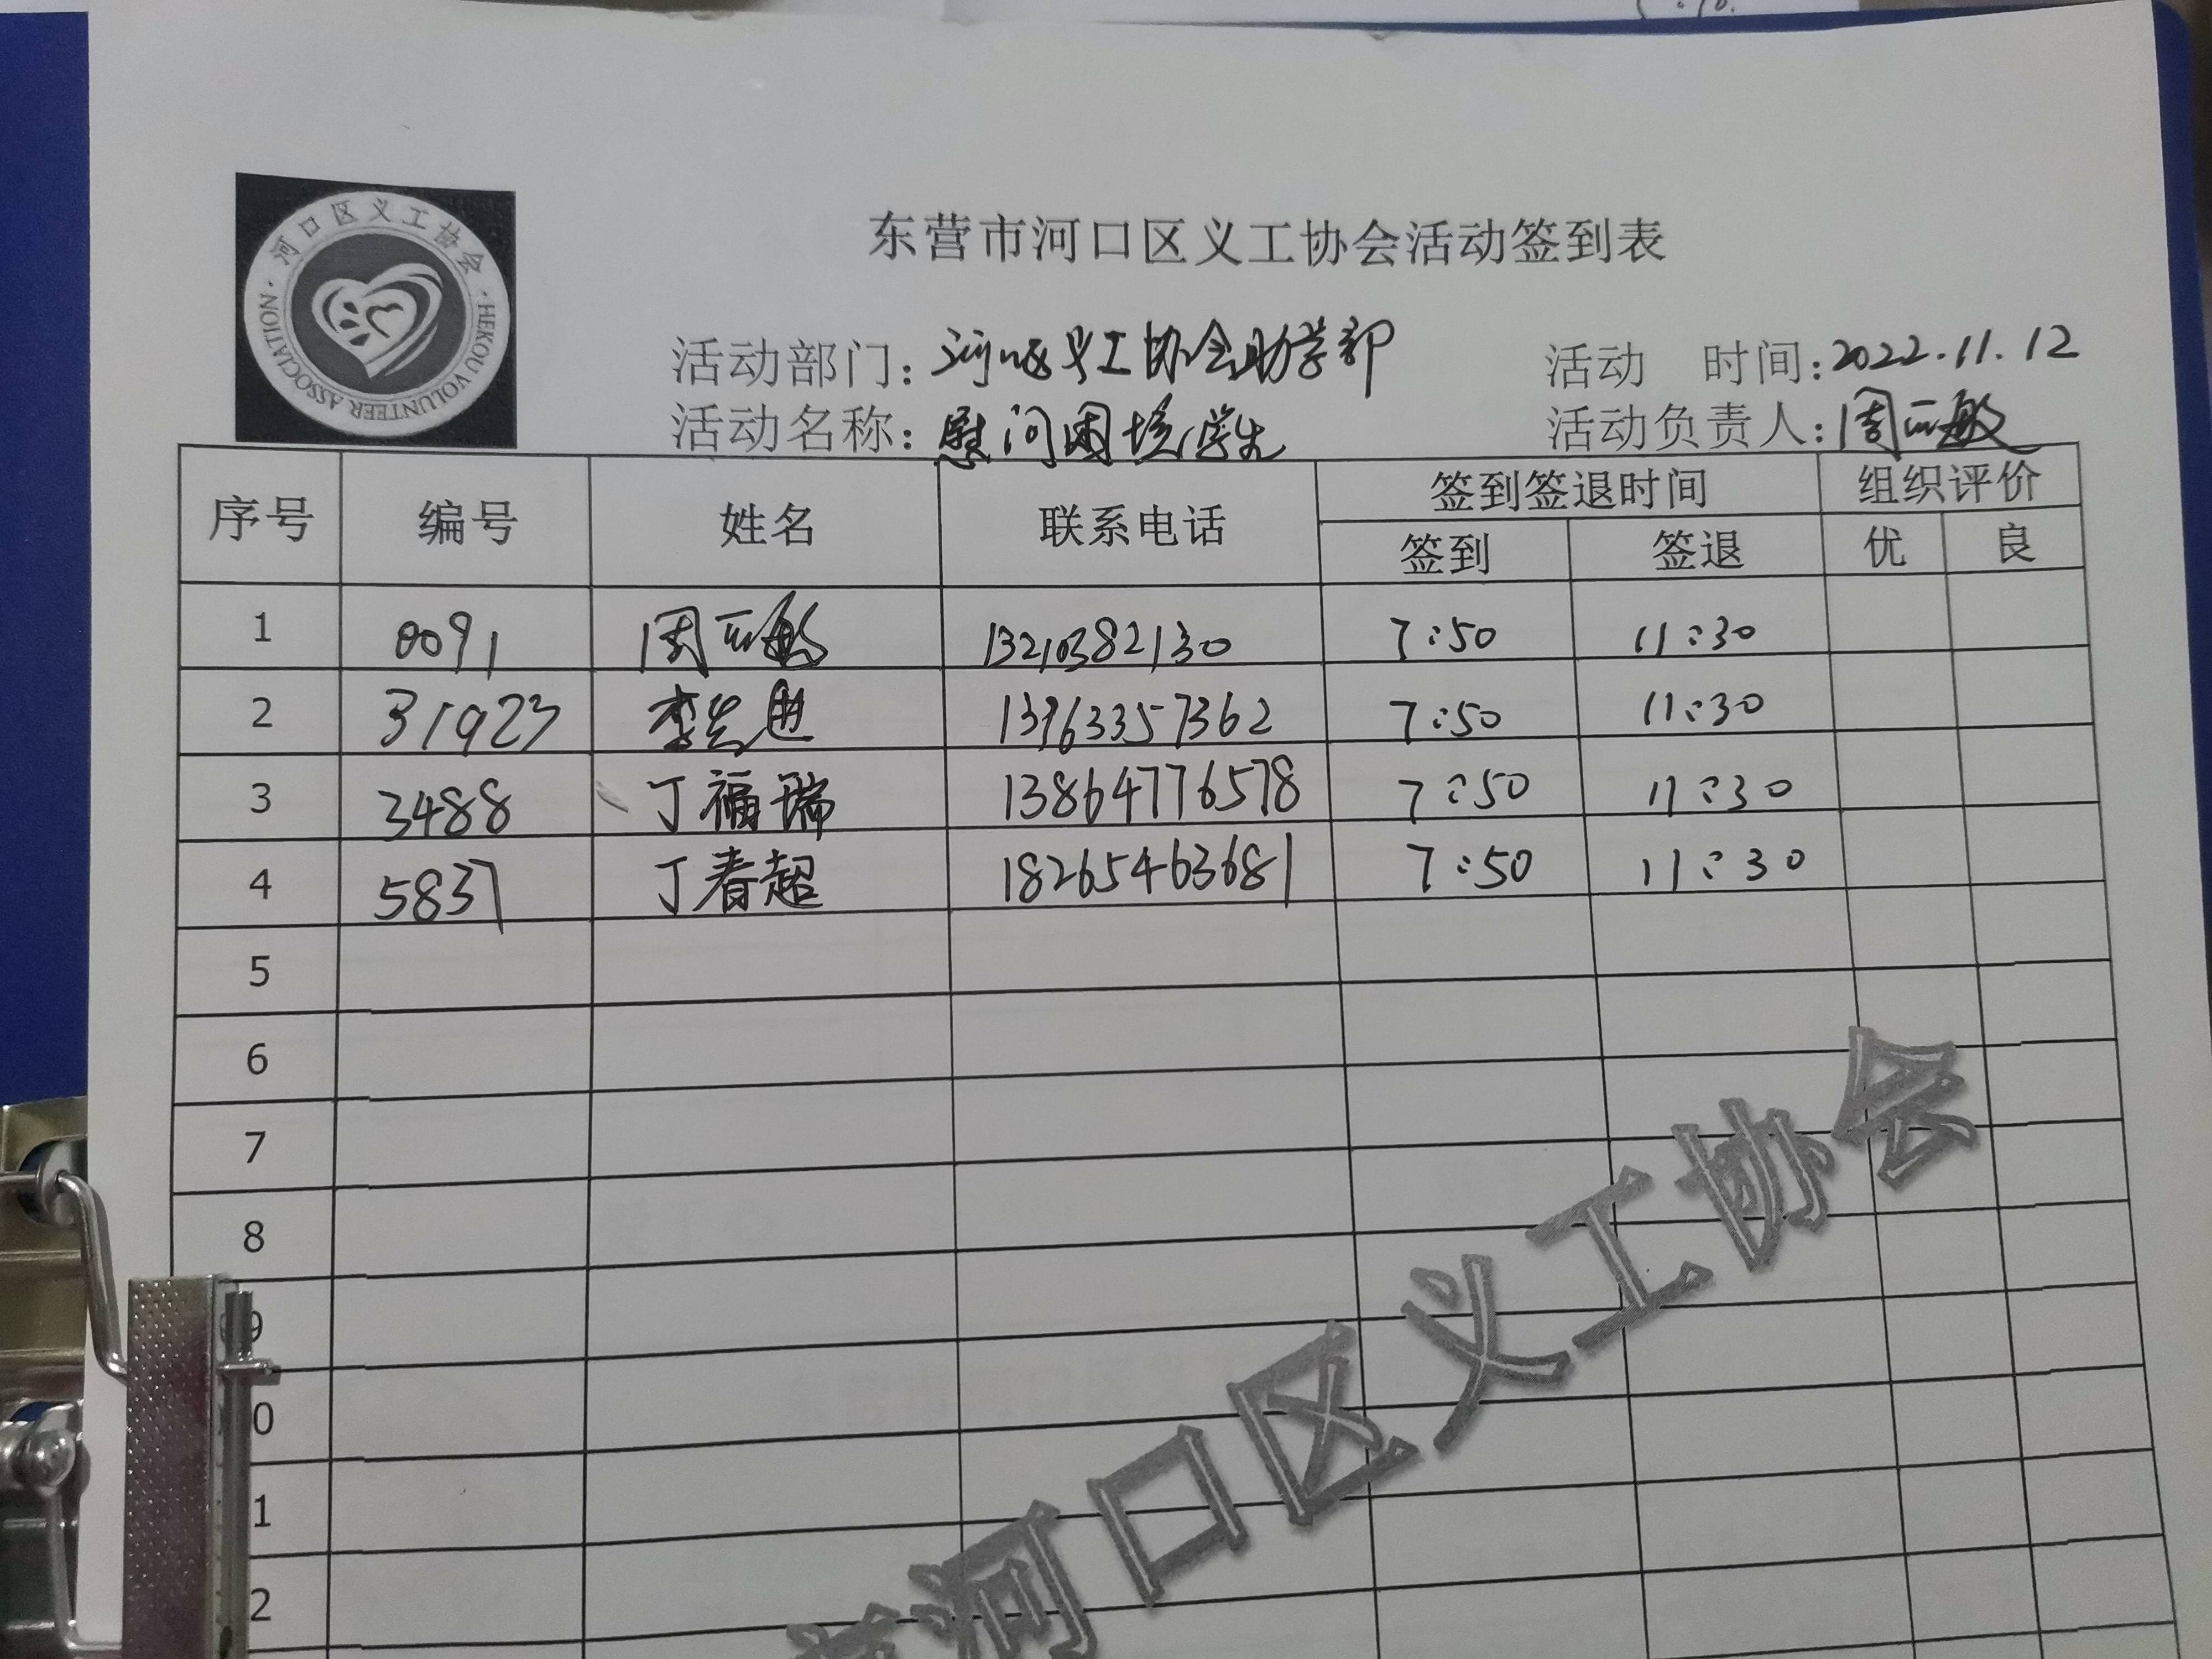 河口区义工协会
HEKOU VOLUNTEER ASSOCIATION
东营市河口区义工协会活动签到表
活动部门：河口区义工协会助学部 活动 时间：2022.11.12
活动名称：慰问困境学生 活动负责人：周敏
序号 编号 姓名 联系电话 签到签退时间 组织评价
签到 签退 优 良
1 0091 周敏 13210382130 7:50 11:30
2 31923 李 13963357362 7:50 11:30
3 3488 丁福瑞 13864776578 7:50 11:30
4 5837 丁春超 18265463681 7:50 11:30
5
6
7
8
9
0
1
2
河口区义工协会